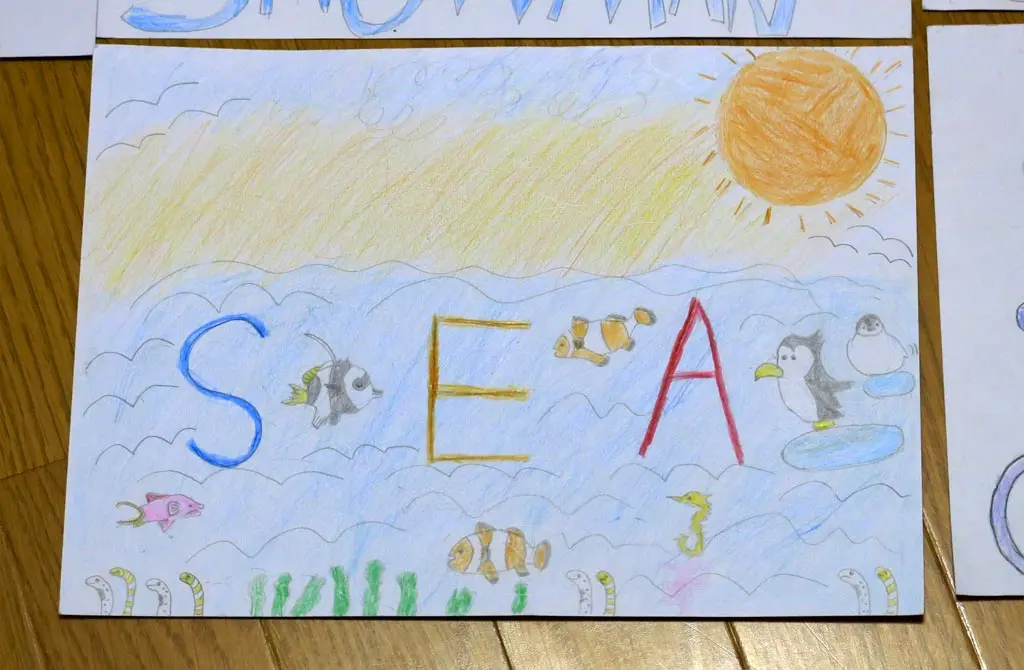 SNOWMAN
SEA